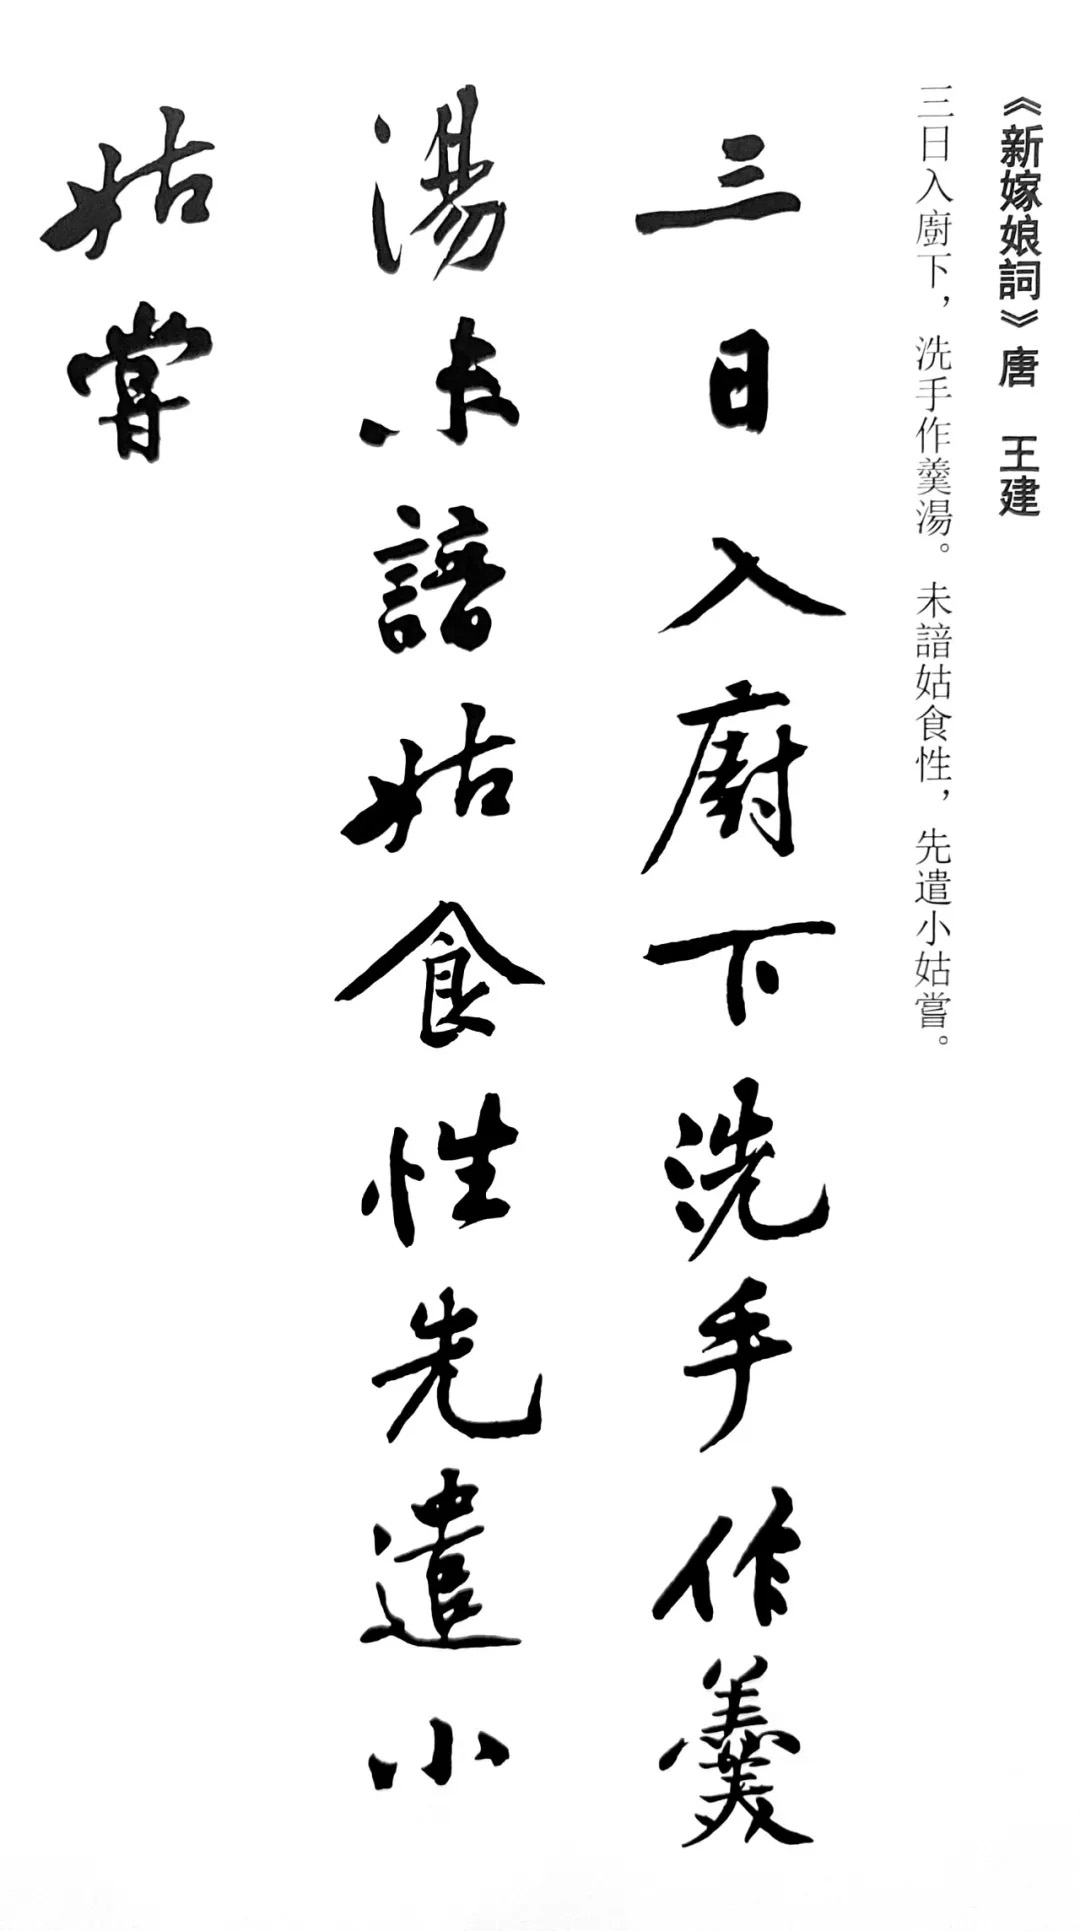 《新嫁娘詞》唐　王建
三日入廚下，洗手作羹湯。未諳姑食性，先遣小姑嘗。
三日入廚下洗手作羹
湯未諳姑食性先遣小
姑嘗